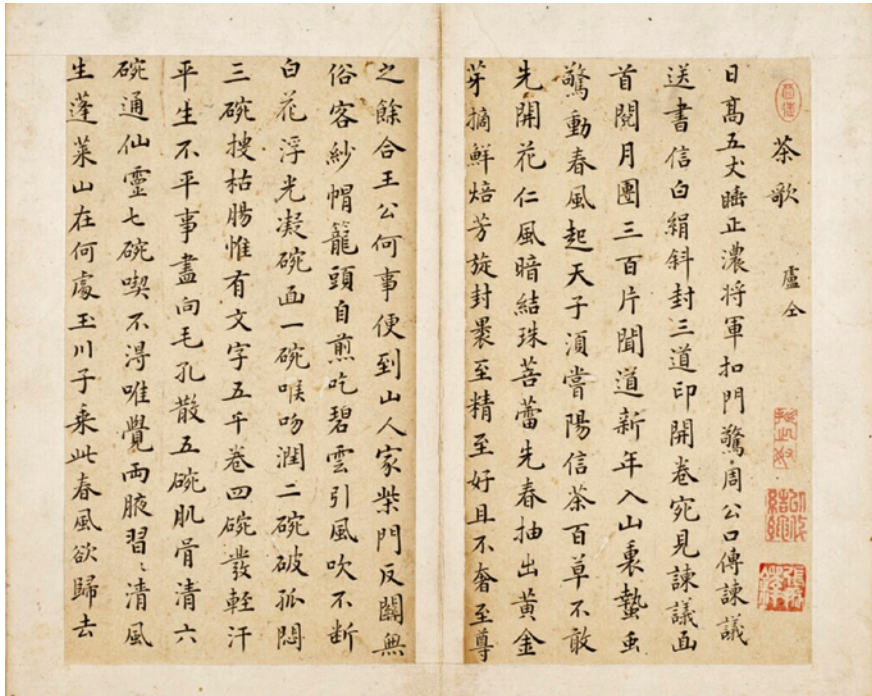 茶歌 盧仝
日高五丈睡正濃将軍扣門驚周公口傳諫議
送書信白絹斜封三道印開卷宛見諫議面
首閱月團三百片聞道新年入山裏蟄虫
驚動春風起天子須嘗陽信茶百草不敢
先開花仁風暗結珠菩蕾先春抽出黃金
芽摘鮮焙芳旋封裹至精至好且不奢至尊
之餘合王公何事便到山人家柴門反關無
俗客紗帽籠頭自煎吃碧雲引風吹不断
白花浮光凝碗面一碗喉吻潤二碗破孤悶
三碗搜枯腸惟有文字五千卷四碗發輕汗
平生不平事盡向毛孔散五碗肌骨清六
碗通仙靈七碗喫不得唯覺兩腋習〻清風
生蓬萊山在何處玉川子乘此春風欲歸去